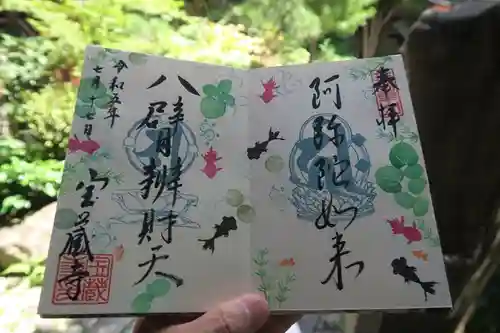 奉拝
阿弥陀如来
八臂辨財天
令和五年
七月十七日
宝蔵寺